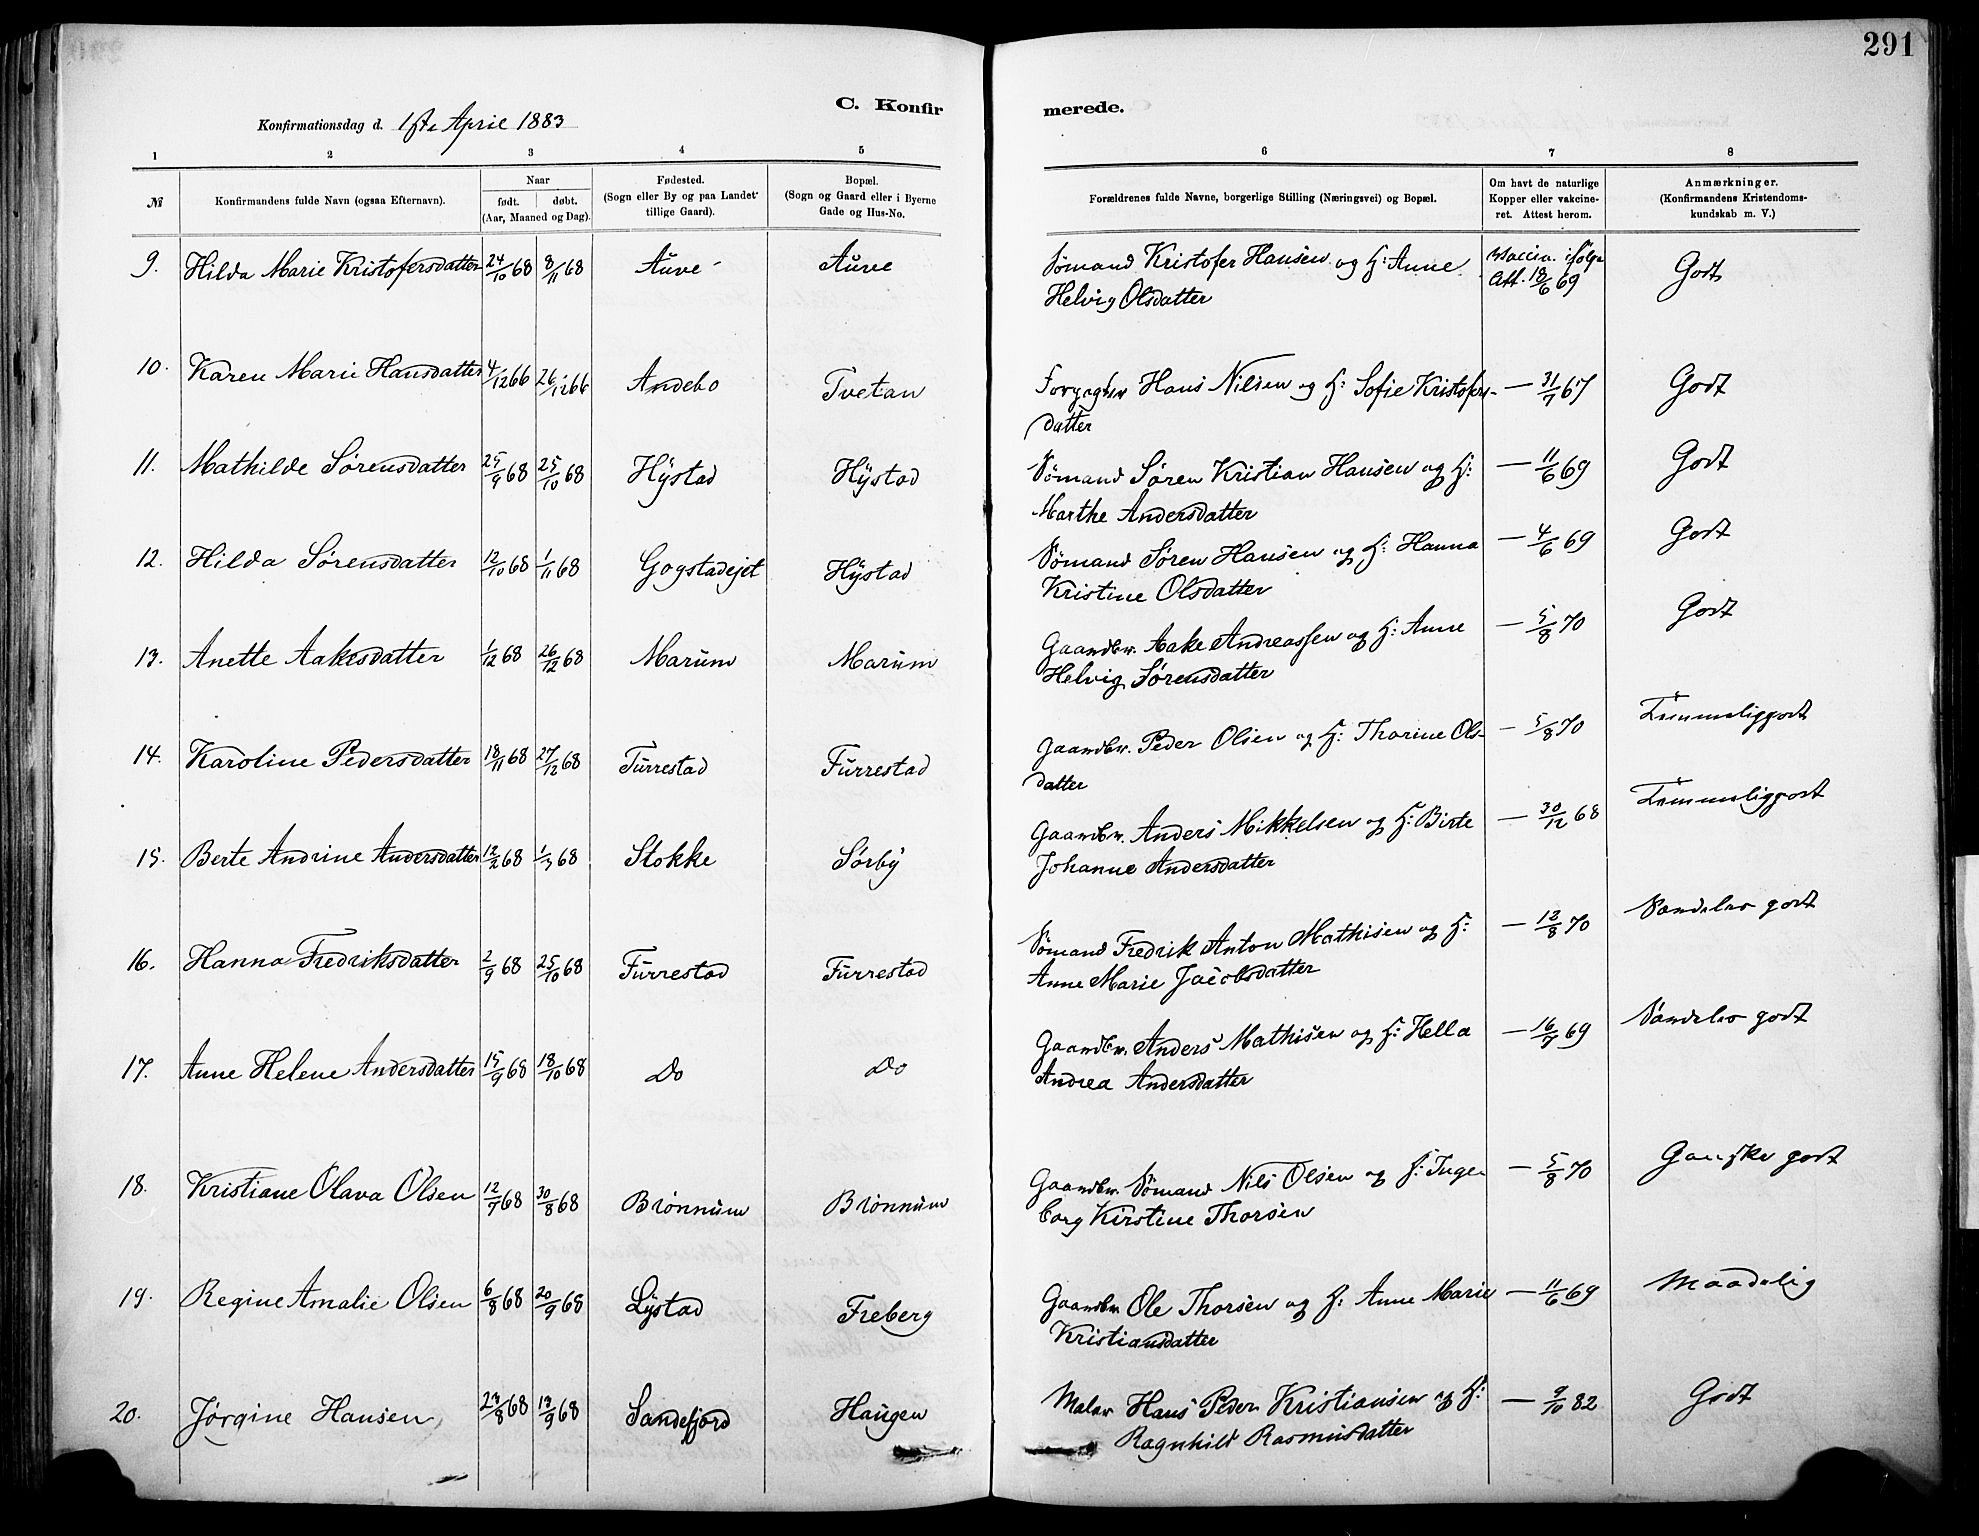 291
C. Konfir merede.
Konfirmationsdag d. 1ste April 1883
1 2 3 4 5 6 7 8
№ Konfirmandens fulde Navn (ogsaa Efternavn). Naar født. døbt. (Aar, Maaned og Dag). Fødested. (Sogn eller By og paa Landet tillige Gaard). Bopæl. (Sogn og Gaard eller i Byerne Gade og Hus-No. Forældrenes fulde Navne, borgerlige Stilling (Næringsvei) og Bopæl. Om havt de naturlige Kopper eller vakcineret. Attest herom. Anmærkninger. (Konfirmandens Kristendomskundskab m. V.)
9. Hilda Marie Kristofersdatter 24/10 68 8/11 68 Auve Auve Sømand Kristofer Hansen og H: Anne Vaccin. ifølge Godt
Helvig Olsdatter Att. 18/6 69
10. Karen Marie Hansdatter 4/12 66 26/12 66 Andebo Tvetan Forpagter Hans Nilsen og H: Sofie Kristofers- — 31/7 67 Godt
datter
11. Mathilde Sørensdatter 25/9 68 25/10 68 Hystad Hystad Sømand Søren Kristian Hansen og H: — 11/6 69 Godt
Marthe Andersdatter
12. Hilda Sørensdatter 12/10 68 1/11 68 Gogstadejet Hystad Sømand Søren Hansen og H: Hanna — 4/6 69 Godt
Kristine Olsdatter
13. Anette Aakesdatter 1/12 68 26/12 68 Marum Marum Gaardbr. Aake Andreassen og H: Anne — 5/8 70 Godt
Helvig Sørensdatter
14. Karoline Pedersdatter 18/11 68 27/12 68 Furrestad Furrestad Gaardbr. Peder Olsen og H: Thorine Ols- — 5/8 70 Temmeliggodt
datter
15. Berte Andrine Andersdatter 12/2 68 1/3 68 Stokke Sørby Gaardbr. Anders Mikkelsen og H: Birte — 30/12 68 Temmeliggodt
Johanne Andersdatter
16. Hanna Fredriksdatter 2/9 68 25/10 68 Furrestad Furrestad Sømand Fredrik Anton Mathisen og H: — 12/8 70 Særdeles godt
Anne Marie Jacobsdatter
17. Anne Helene Andersdatter 15/9 68 18/10 68 Do Do Gaardbr. Anders Mathisen og H: Hella — 16/7 69 Særdeles godt
Andrea Andersdatter
18. Kristiane Olava Olsen 12/7 68 30/8 68 Brønnum Brønnum Gaardbr. Sømand Nils Olsen og H: Inge — 5/8 70 Ganske godt
borg Kirstine Thorsen
19. Regine Amalie Olsen 6/8 68 20/9 68 Lystad Freberg Gaardbr Ole Thorsen og H: Anne Marie — 11/6 69 Maadelig
Kristiansdatter
20. Jørgine Hansen 23/8 68 13/9 68 Sandefjord Haugen Maler Hans Peder Kristiansen og H: — 9/10 82 Godt
Ragnhild Rasmusdatter